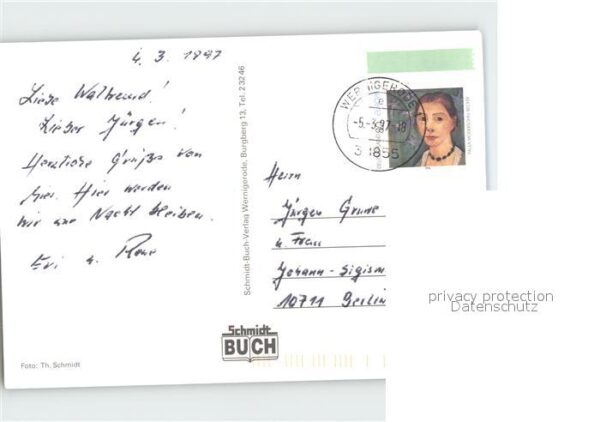 4. 3. 1997
Liebe Waltraud!
Lieber Jürgen!
Herzliche Grüße von
hier. Hier werden
wir eine Nacht bleiben.
Evi u.
Schmidt-Buch-Verlag Wernigerode, Burgberg 13, Tel. 23246
WERNIGERODE
-5.-3.97-18
38855
Herrn
Jürgen
u. Frau
Johann-Sigism
10711 Berlin
Schmidt
BUCH
Foto: Th. Schmidt
privacy protection
Datenschutz